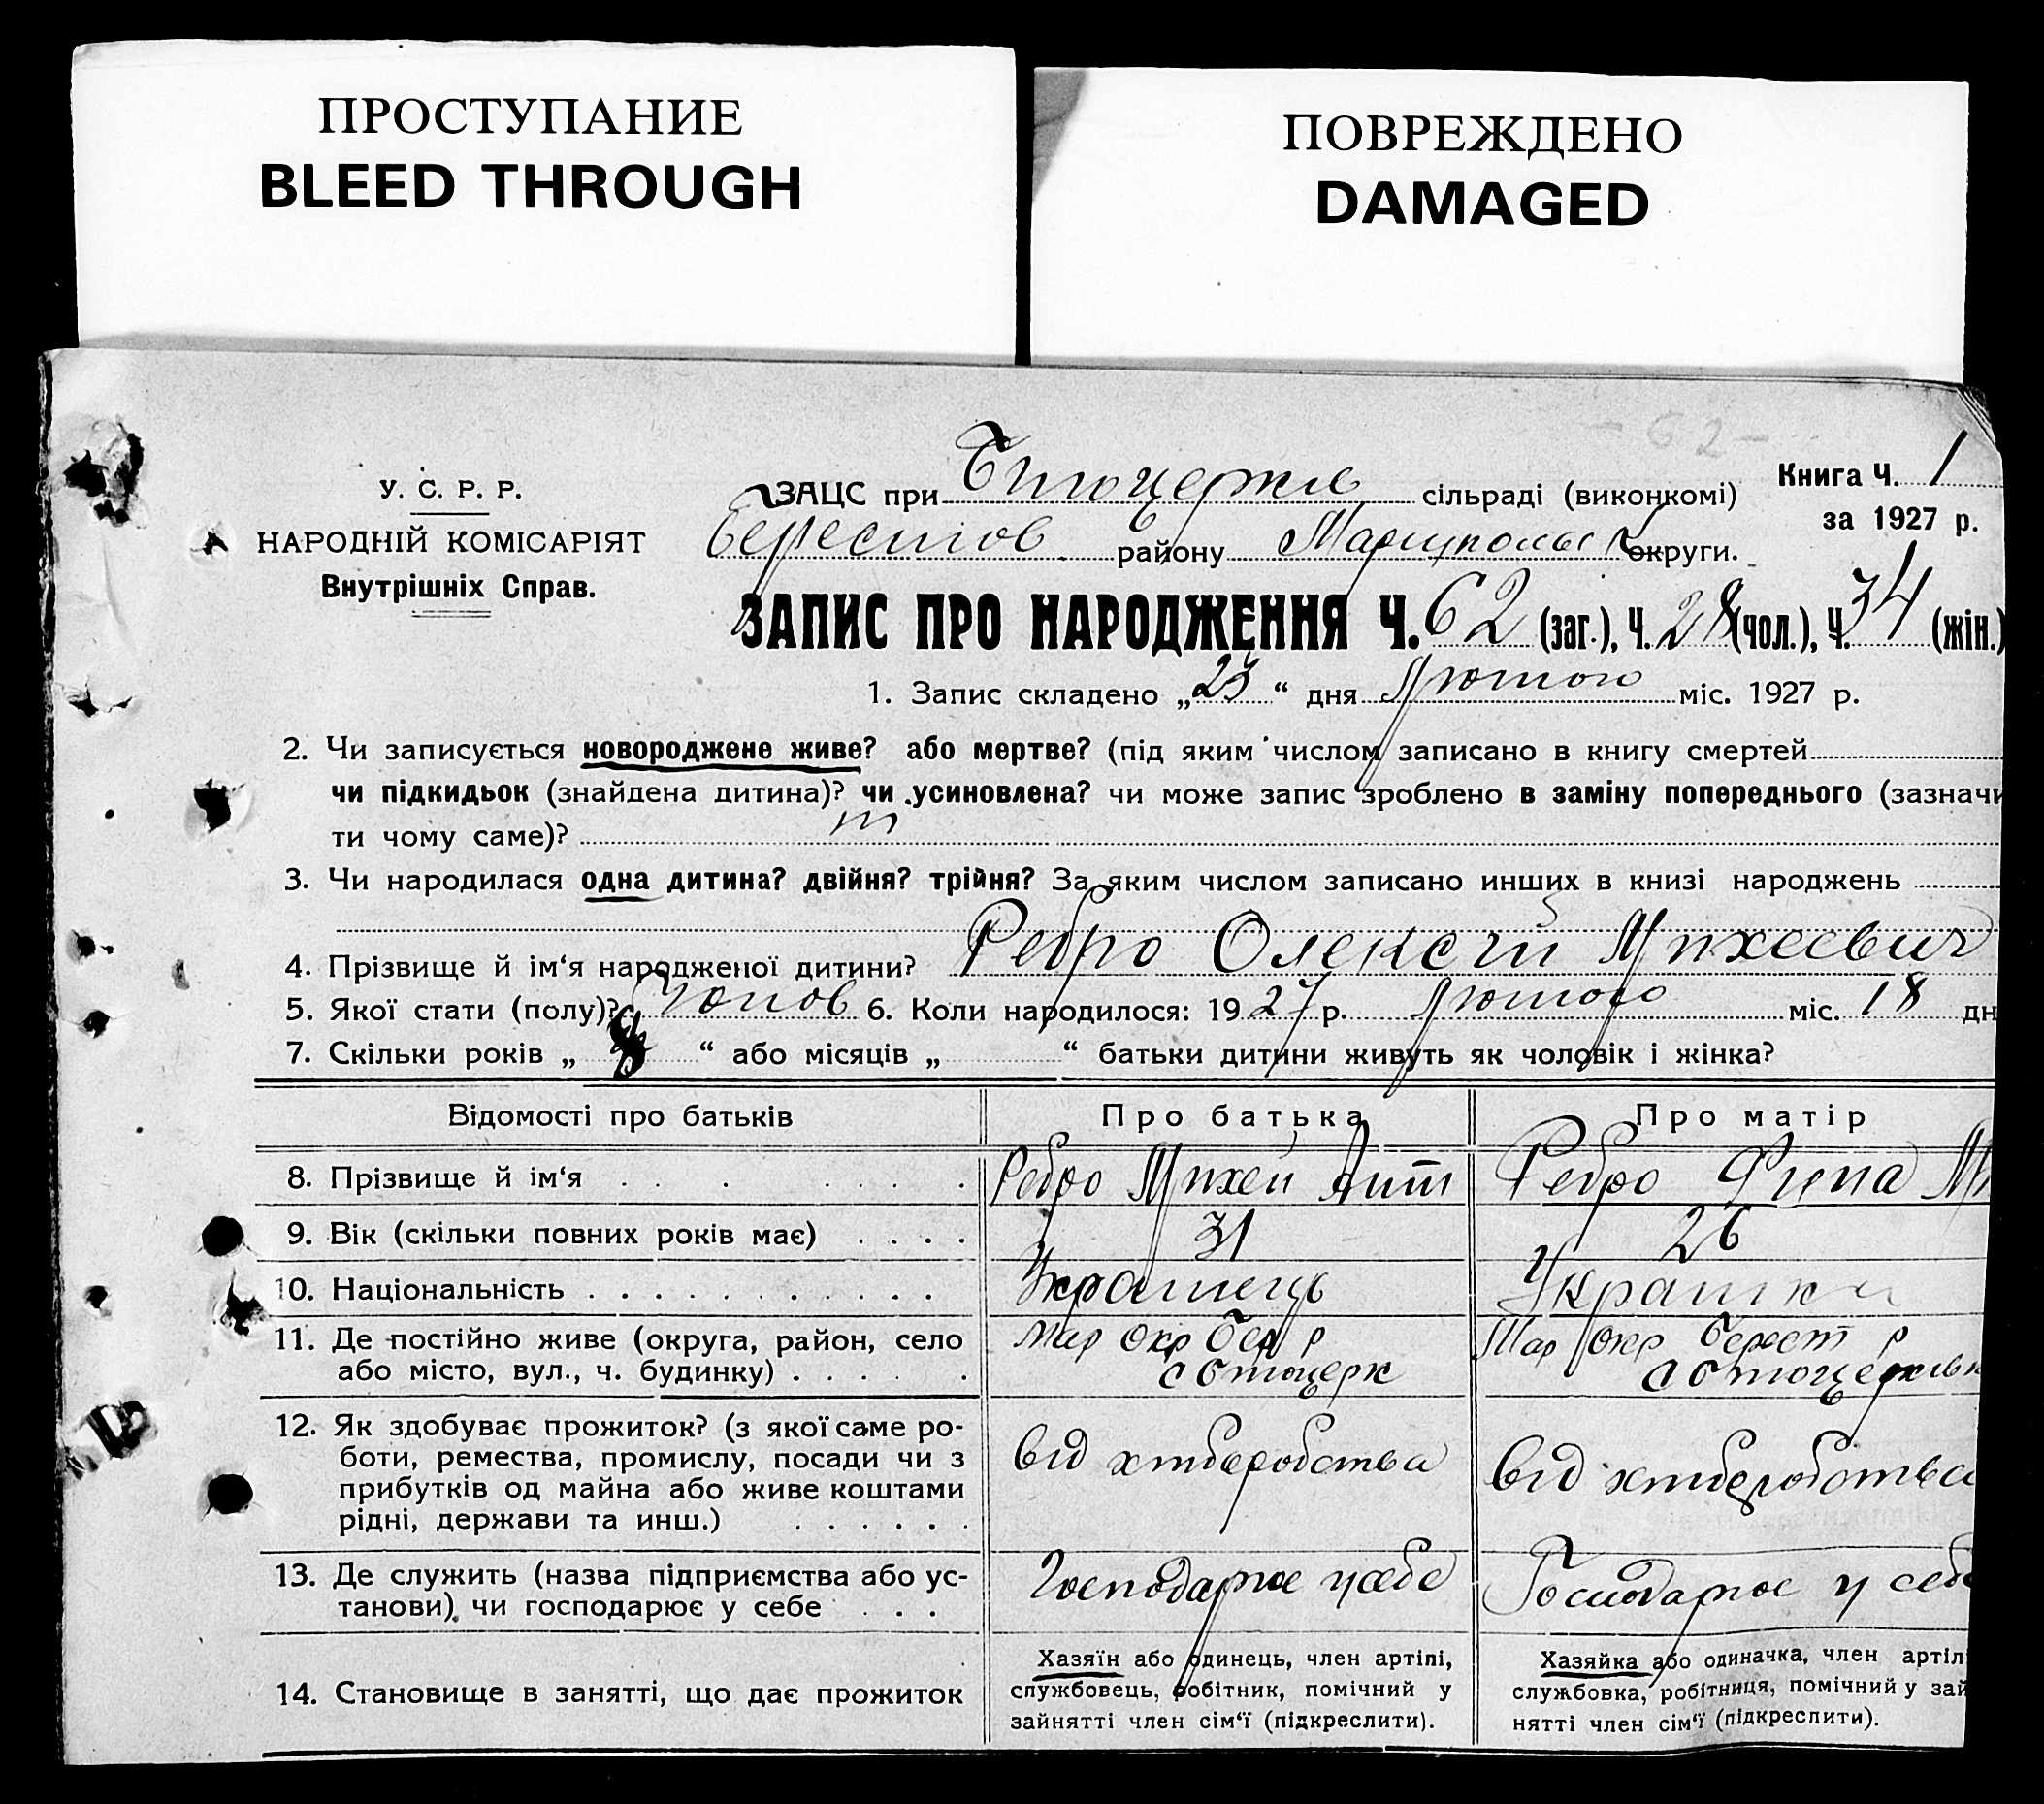 ПРОСТУПАНИЕ
BLEED THROUGH
ПОВРЕЖДЕНО
DAMAGED
- 62 -
У. С. Р. Р.
НАРОДНІЙ КОМІСАРІЯТ
Внутрішніх Справ.
Книга Ч. 1
за 1927 р.
ЗАЦС при сільраді (виконкомі)
Берестов району Маріупольс округи.
ЗАПИС ПРО НАРОДЖЕННЯ Ч. 62 (заг.), Ч. 28 (чол.), Ч. 34 (жін.)
1. Запис складено „23“ дня Лютого міс. 1927 р.
2. Чи записується новороджене живе? або мертве? (під яким числом записано в книгу смертей
чи підкидьок (знайдена дитина)? чи усиновлена? чи може запис зроблено в заміну попереднього (зазначи
ти чому саме)?
3. Чи народилася одна дитина? двійня? трійня? За яким числом записано инших в книзі народжень
4. Прізвище й ім‘я народженої дитини? Ребро Олексій Михеевич
5. Якої стати (полу)? Чолов 6. Коли народилося: 1927 р. Лютого міс. 18 дн
7. Скільки років „ 8 “ або місяців „ “ батьки дитини живуть як чоловік і жінка?
Відомості про батьків Про батька Про матір
8. Прізвище й ім‘я Ребро Михей Ант Ребро Ми
9. Вік (скільки повних років має) 31 26
10. Національність Українець Українка
11. Де постійно живе (округа, район, село Мар окр Бер р Мар окр Берест р
або місто, вул., ч. будинку)
12. Як здобуває прожиток? (з якої саме ро-
боти, ремества, промислу, посади чи з від хліборобства від хліборобства
прибутків од майна або живе коштами
рідні, держави та инш.)
13. Де служить (назва підприємства або ус- Господарює у себе Господарює у себе
танови), чи господарює у себе
14. Становище в занятті, що дає прожиток
Хазяїн або одинець, член артілі,
службовець, робітник, помічний у
зайнятті член сім‘ї (підкреслити).
Хазяйка або одиначка, член артіл
службовка, робітниця, помічний у зай
нятті член сім‘ї (підкреслити).